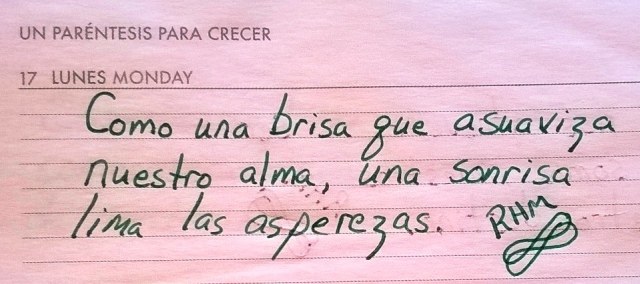 UN PARÉNTESIS PARA CRECER
17 LUNES MONDAY
Como una brisa que asuaviza
nuestro alma, una sonrisa
lima las asperezas. RHM